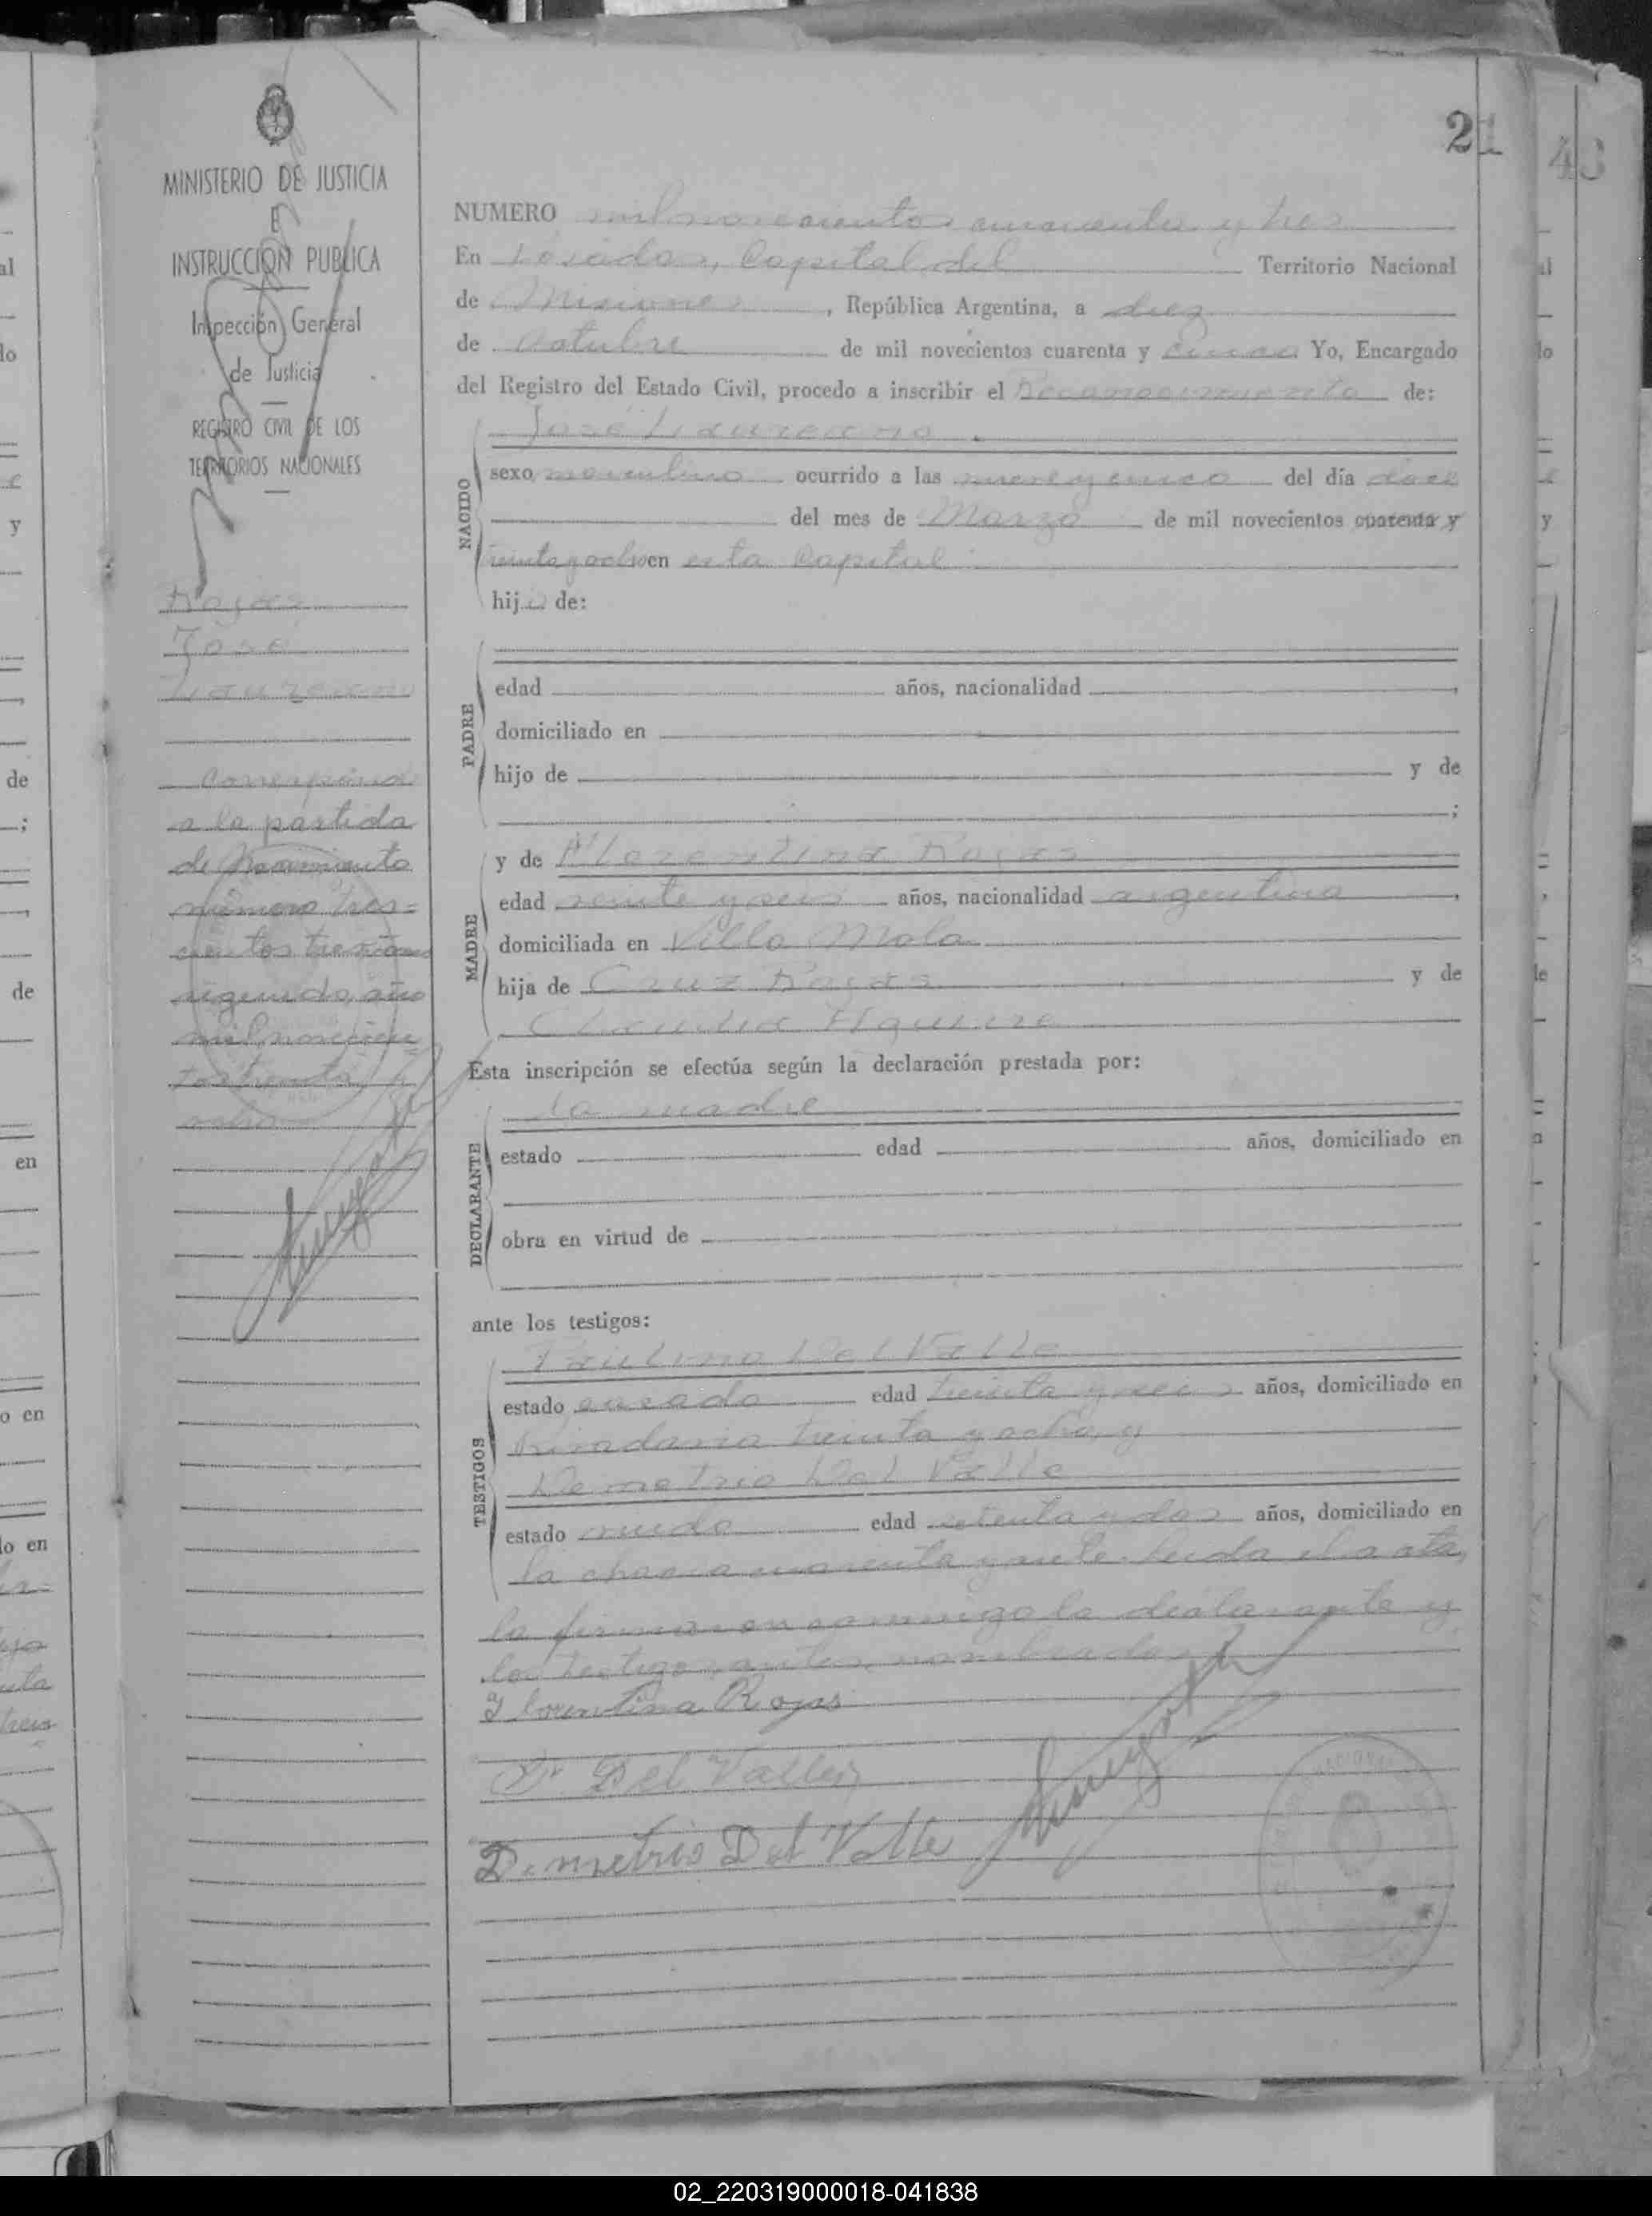 21
43
MINISTERIO DE JUSTICIA
E
INSTRUCCION PUBLICA
Inspección General
de Justicia
REGISTRO CIVIL DE LOS
TERRITORIOS NACIONALES
Rojas
José
Laureano
Corresponde
a la partida
de Nacimiento
número tres=
cientos treinta
segundo, año
mil novecien=
tos treinta y
ocho
NUMERO mil novecientos cuarenta y tres
En Posadas, Capital del Territorio Nacional
de Misiones, República Argentina, a diez
de Octubre de mil novecientos cuarenta y cinco Yo, Encargado
del Registro del Estado Civil, procedo a inscribir el Reconocimiento de:
José Laureano
NACIDO
sexo masculino ocurrido a las nueve y cinco del día doce
del mes de Marzo de mil novecientos cuarenta y
treinta y ocho en esta Capital
hijo de:
PADRE
edad años, nacionalidad
domiciliado en
hijo de y de
;
MADRE
y de Florentina Rojas
edad veinte y seis años, nacionalidad argentina,
domiciliada en Villa Mola
hija de Cruz Rojas y de
Claudia Aguirre
Esta inscripción se efectúa según la declaración prestada por:
DECLARANTE
la madre
estado edad años, domiciliado en
obra en virtud de
ante los testigos:
TESTIGOS
Paulino Del Valle
estado casado edad treinta y seis años, domiciliado en
Rivadavia treinta y ocho, y
Demetrio Del Valle
estado viudo edad setenta y dos años, domiciliado en
la chacra cuarenta y siete. Leida el acta,
la firmaron conmigo la declarante y
los testigos antes nombrados
Florentina Rojas
P. Del Valle
Demetrio Del Valle
02_220319000018-041838